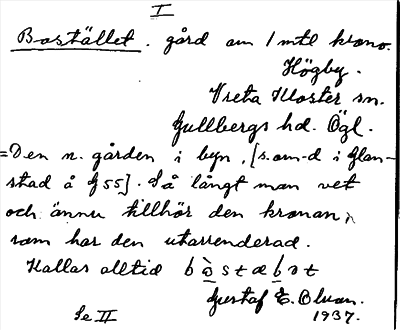 I
Bostället. gård om 1 mtl krono.
Högby.
Vreta Kloster sn.
Gullbergs hd. Ögl.
=Den n. gården i byn, [s.om-d i Glan-
stad å G 55]. Så långt man vet
och ännu tillhör den kronan,
som har den utarrenderad.
Kallas alltid
Gustaf E. Bluan.
Se II
1937.